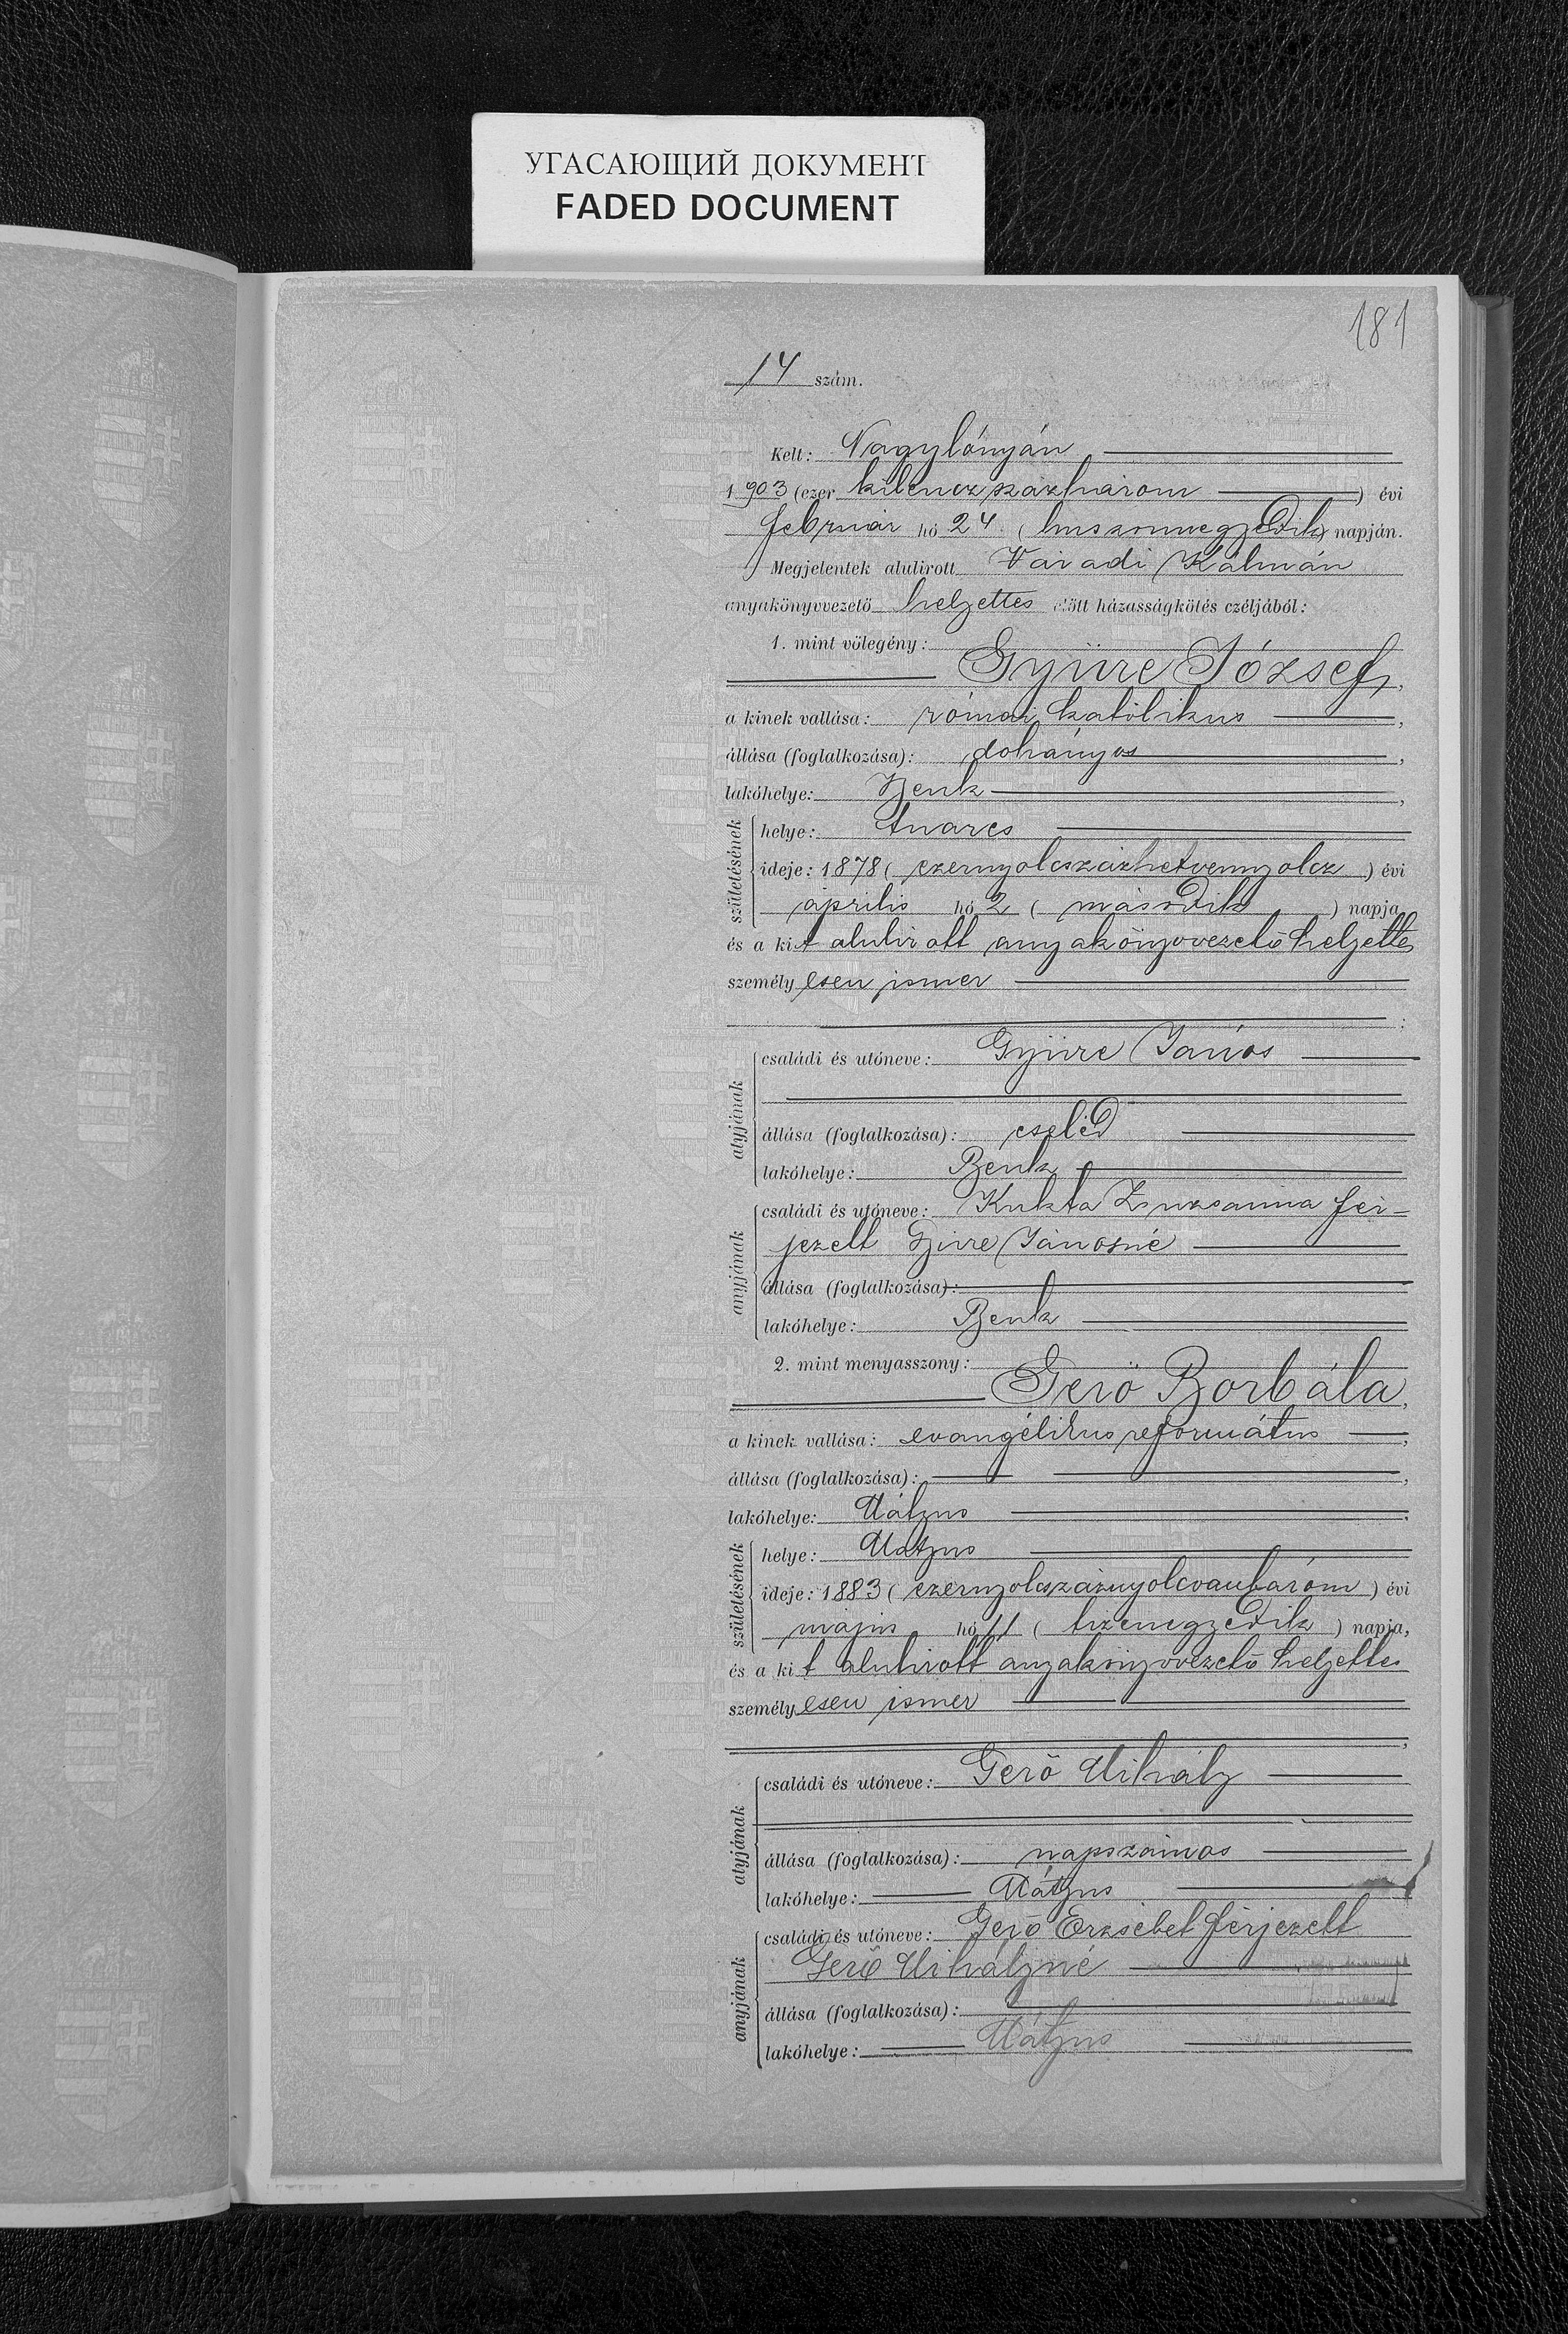 УГАСАЮЩИЙ ДОКУМЕНТ
FADED DOCUMENT
181
14 szám.
Kelt: Nagylónyán
1903 (ezer kilenczszázhárom) évi
február hó 24. (huszonnegyedik) napján.
Megjelentek alulirott Váradi Kálmán
anyakönyvvezető helyettes előtt házasságkötés czéljából:
1. mint vőlegény:
Gyüre József,
a kinek vallása: római katolikus,
állása (foglalkozása): dohányos,
lakóhelye: Benk,
születésének
helye: Anarcs
ideje: 1878 (ezernyolcszázhetvennyolcz) évi
április hó 2 (második) napja
és a kit alulirott anyakönyvvezető helyettes
személyesen ismer
;
atyjának
családi és utóneve: Gyüre János
állása (foglalkozása): cseléd
lakóhelye: Benk
anyjának
családi és utóneve: Kukta Zsuzsanna fér-
jezett Gyüre Jánosné
állása (foglalkozása):
lakóhelye: Benk
2. mint menyasszony:
Gerő Borbála,
a kinek vallása: evangélikus református,
állása (foglalkozása):,
lakóhelye: Mátyus,
születésének
helye: Mátyus
ideje: 1883 (ezernyolcszáznyolcvanhárom) évi
május hó 11 (tizenegyedik) napja,
és a kit alulirott anyakönyvvezető helyettes
személyesen ismer
,
atyjának
családi és utóneve: Gerő Mihály
állása (foglalkozása): napszámos
lakóhelye: Mátyus
anyjának
családi és utóneve: Gerő Erzsébet férjezett
Gerő Mihályné
állása (foglalkozása):
lakóhelye: Mátyus